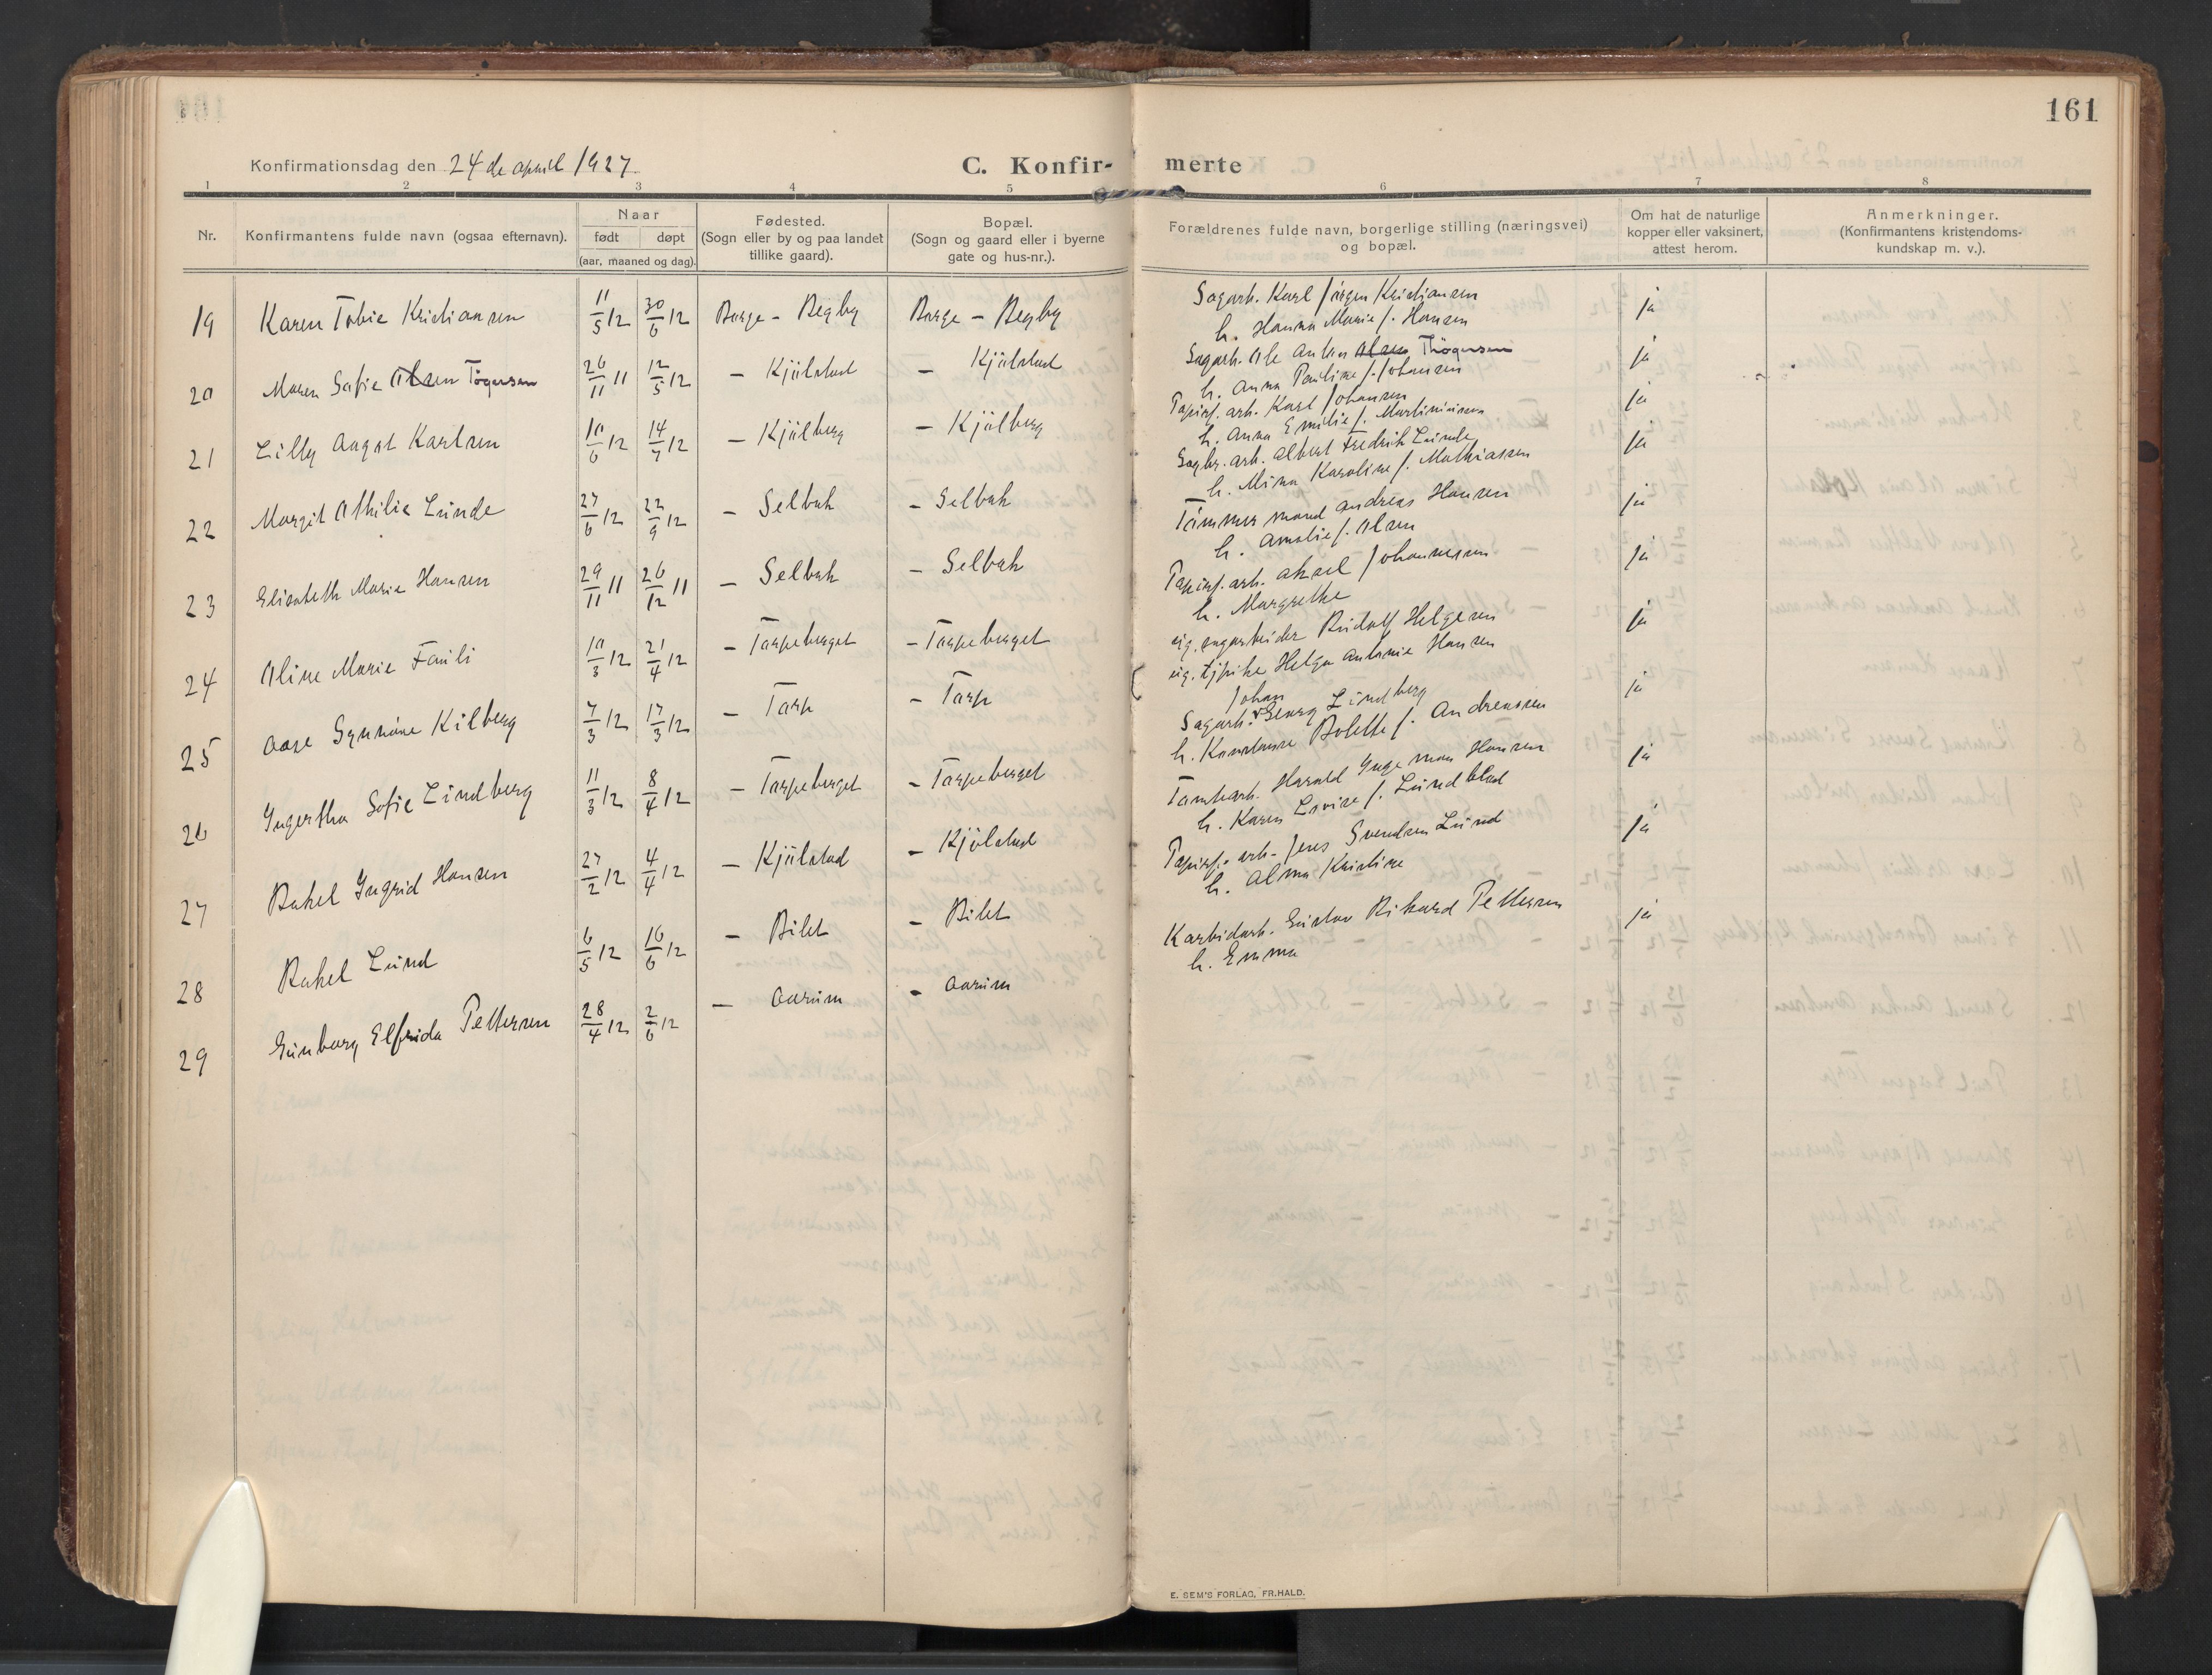 161
Konfirmationsdag den 24 de april 1927.
C. Konfir- merte
1 2 3 4 5 6 7 8
Nr.
Konfirmantens fulde navn (ogsaa efternavn).
Naar
født døpt
(aar, maaned og dag).
Fødested.
(Sogn eller by og paa landet
tillike gaard).
Bopæl.
(Sogn og gaard eller i byerne
gate og hus-nr.).
Forældrenes fulde navn, borgerlige stilling (næringsvei)
og bopæl.
Om hat de naturlige
kopper eller vaksinert,
attest herom.
Anmerkninger.
(Konfirmantens kristendoms-
kundskap m. v.).
19 Karen Tobie Kristiansen 11/5 12 30/6 12 Borge - Begby Borge - Begby
Sagarb. Karl Jørgen Kristiansen ja
h. Hanna Marie f. Hansen
20 Maren Sofie Olsen Tøgersen 26/11 11 12/5 12 - Kjølstad - Kjølstad
Sagarb. Ole Anton Olsen Thøgersen ja
h. Anna Pauline f. Johansen
21 Lilly Aagot Karlsen 10/6 12 14/7 12 - Kjølberg - Kjølberg
Papirf. arb. Karl Johansen ja
h. Anna Emilie f. Martiniusen
22 Margit Othilie Lunde 27/6 12 22/9 12 - Selbak - Selbak
Sagbr. arb. Albert Fredrik Lunde ja
h. Mina Karoline f. Mathiassen
23 Elisabeth Marie Hansen 29/11 11 26/12 11 - Selbak - Selbak
Tømmermand Andreas Hansen ja
h. Amalie f. Olsen
24 Oline Marie Fauli 10/3 12 21/4 12 - Torpeberget - Torpeberget
Papirf. arb. Aksel Johannesen ja
h. Margrethe
25 Aase Synnøve Kilberg 7/3 12 17/3 12 - Torp - Torp
ug. sagarbeider Rudolf Helgesen ja
ug. tjpike Helga Antonie Hansen
26 Ingertha Sofie Lindberg 11/3 12 8/4 12 - Torpeberget - Torpeberget
Johan
Sagarb. Georg Lindberg ja
h. Konstanse Bolette f. Andreassen
27 Rakel Ingrid Hansen 27/2 12 4/4 12 - Kjølstad - Kjølstad
Tomtearb. Harald Ingeman Hansen ja
h. Karen Lovise f. Lundblad
28 Rakel Lund 6/5 12 16/6 12 - Bilet - Bilet
Papirf. arb. Jens Svendsen Lund ja
h. Alma Kristine
29 Gunborg Elfrida Pettersen 28/4 12 2/6 12 - Aarum - Aarum
Karbidarb. Gustav Rikard Pettersen ja
h. Emma
E. SEM'S FORLAG, FR.HALD.